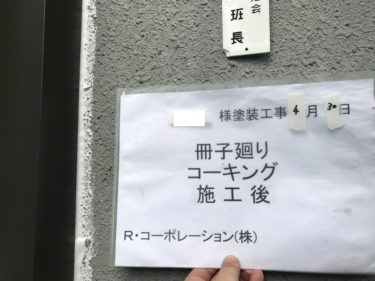 会
班長
様塗装工事 4月 30日
冊子廻り
コーキング
施工後
R・コーポレーション(株)